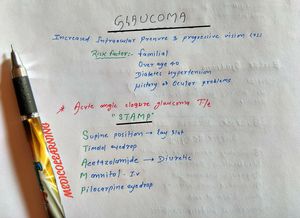 GLAUCOMA
Increased Intraocular Pressure & progressive vision loss
Risk factor:- familial
Over age 40
Diabetes Hypertension
History of Ocular problems
* Acute angle closure glaucoma T/t
"STAMP"
Supine position → lay flat
Timolol eyedrop
Acetazolamide → Diuretic
Mannitol - I.v
Pilocarpine eyedrop
MEDICOLEARNING